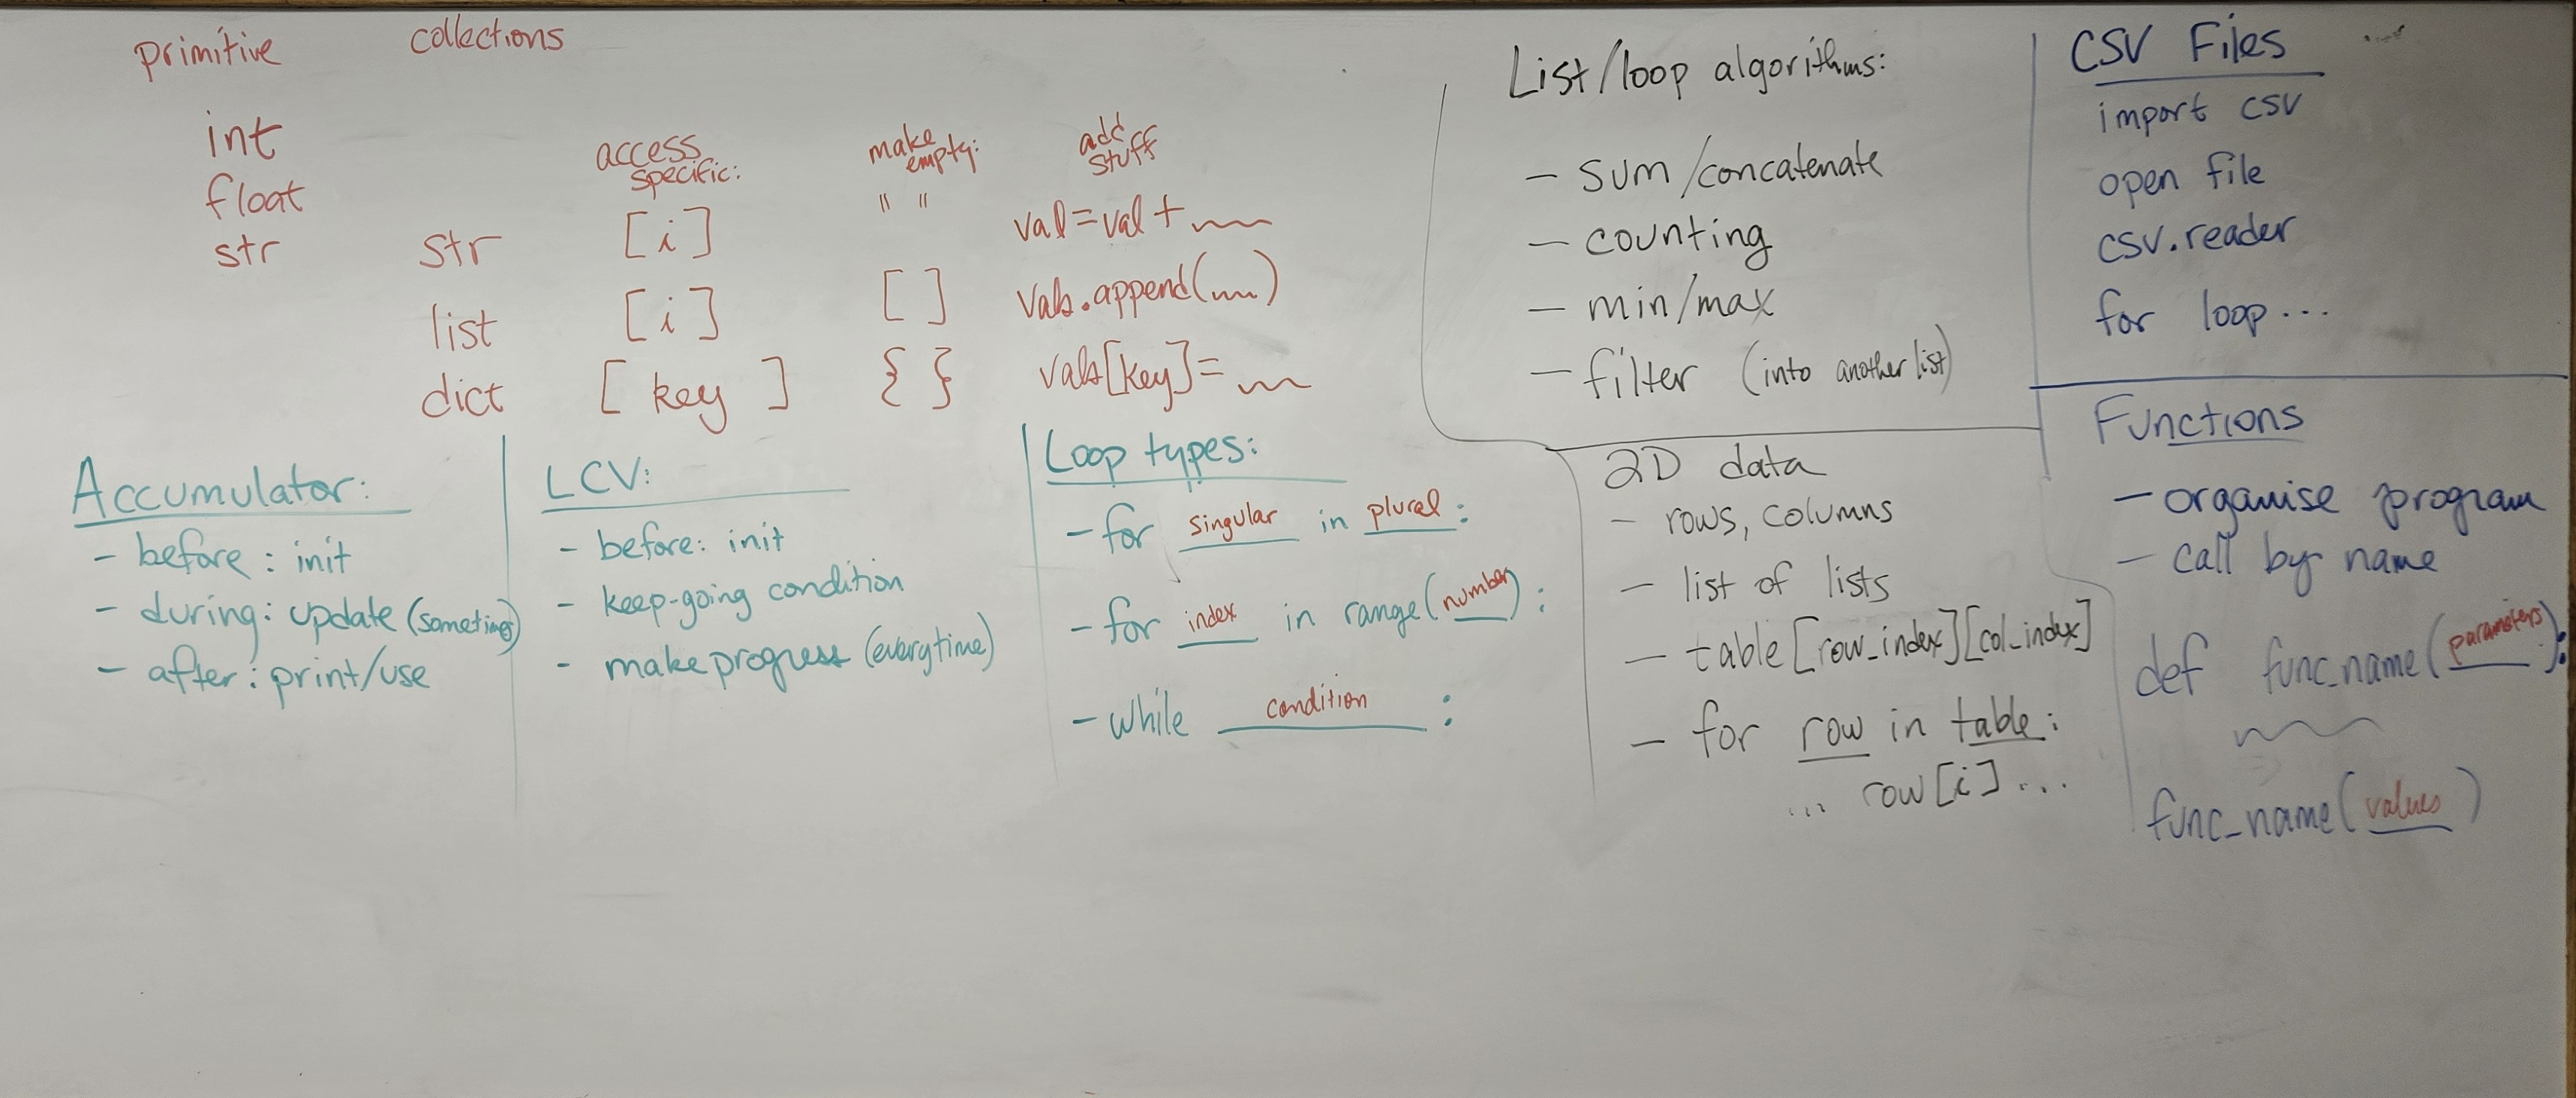 primitive collections
int
float
str
access
specific:
make
empty:
add
stuff
str [i] " " val=val+
list [i] [ ] vals.append( )
dict [ key ] { } vals[key]=
Accumulator:
- before: init
- during: update (sometimes)
- after: print/use
LCV:
- before: init
- keep-going condition
- make progress (everytime)
Loop types:
- for singular in plural:
- for index in range(number):
- while condition:
List/loop algorithms:
- sum/concatenate
- counting
- min/max
- filter (into another list)
2D data
- rows, columns
- list of lists
- table[row_index][col_index]
- for row in table:
... row[i] ...
CSV Files
import csv
open file
csv.reader
for loop...
Functions
- organise program
- call by name
def func_name(parameters):
func_name(values)